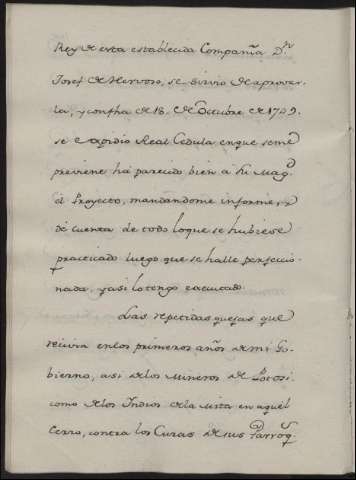 Rey de esta establecida Compañia Dn.
Josef de Herboso, se sirvio de aprovar-
la, y con fha de 18. de Octubre de 1749.
se expidio Real Cedula en que se me
previene ha parecido bien a Su Magd.
el Proyecto, mandandome informe, y
dé cuenta de todo lo que se hubiese
practicado luego que se halle perfeccio-
nada, y asi lo tengo executado.
Las repetidas quejas que
recivia en los primeros años de mi Go-
bierno, asi de los Mineros de Potosi
como de los Indios de la Mita en aquel
Cerro, contra los Curas de sus Parroqs.